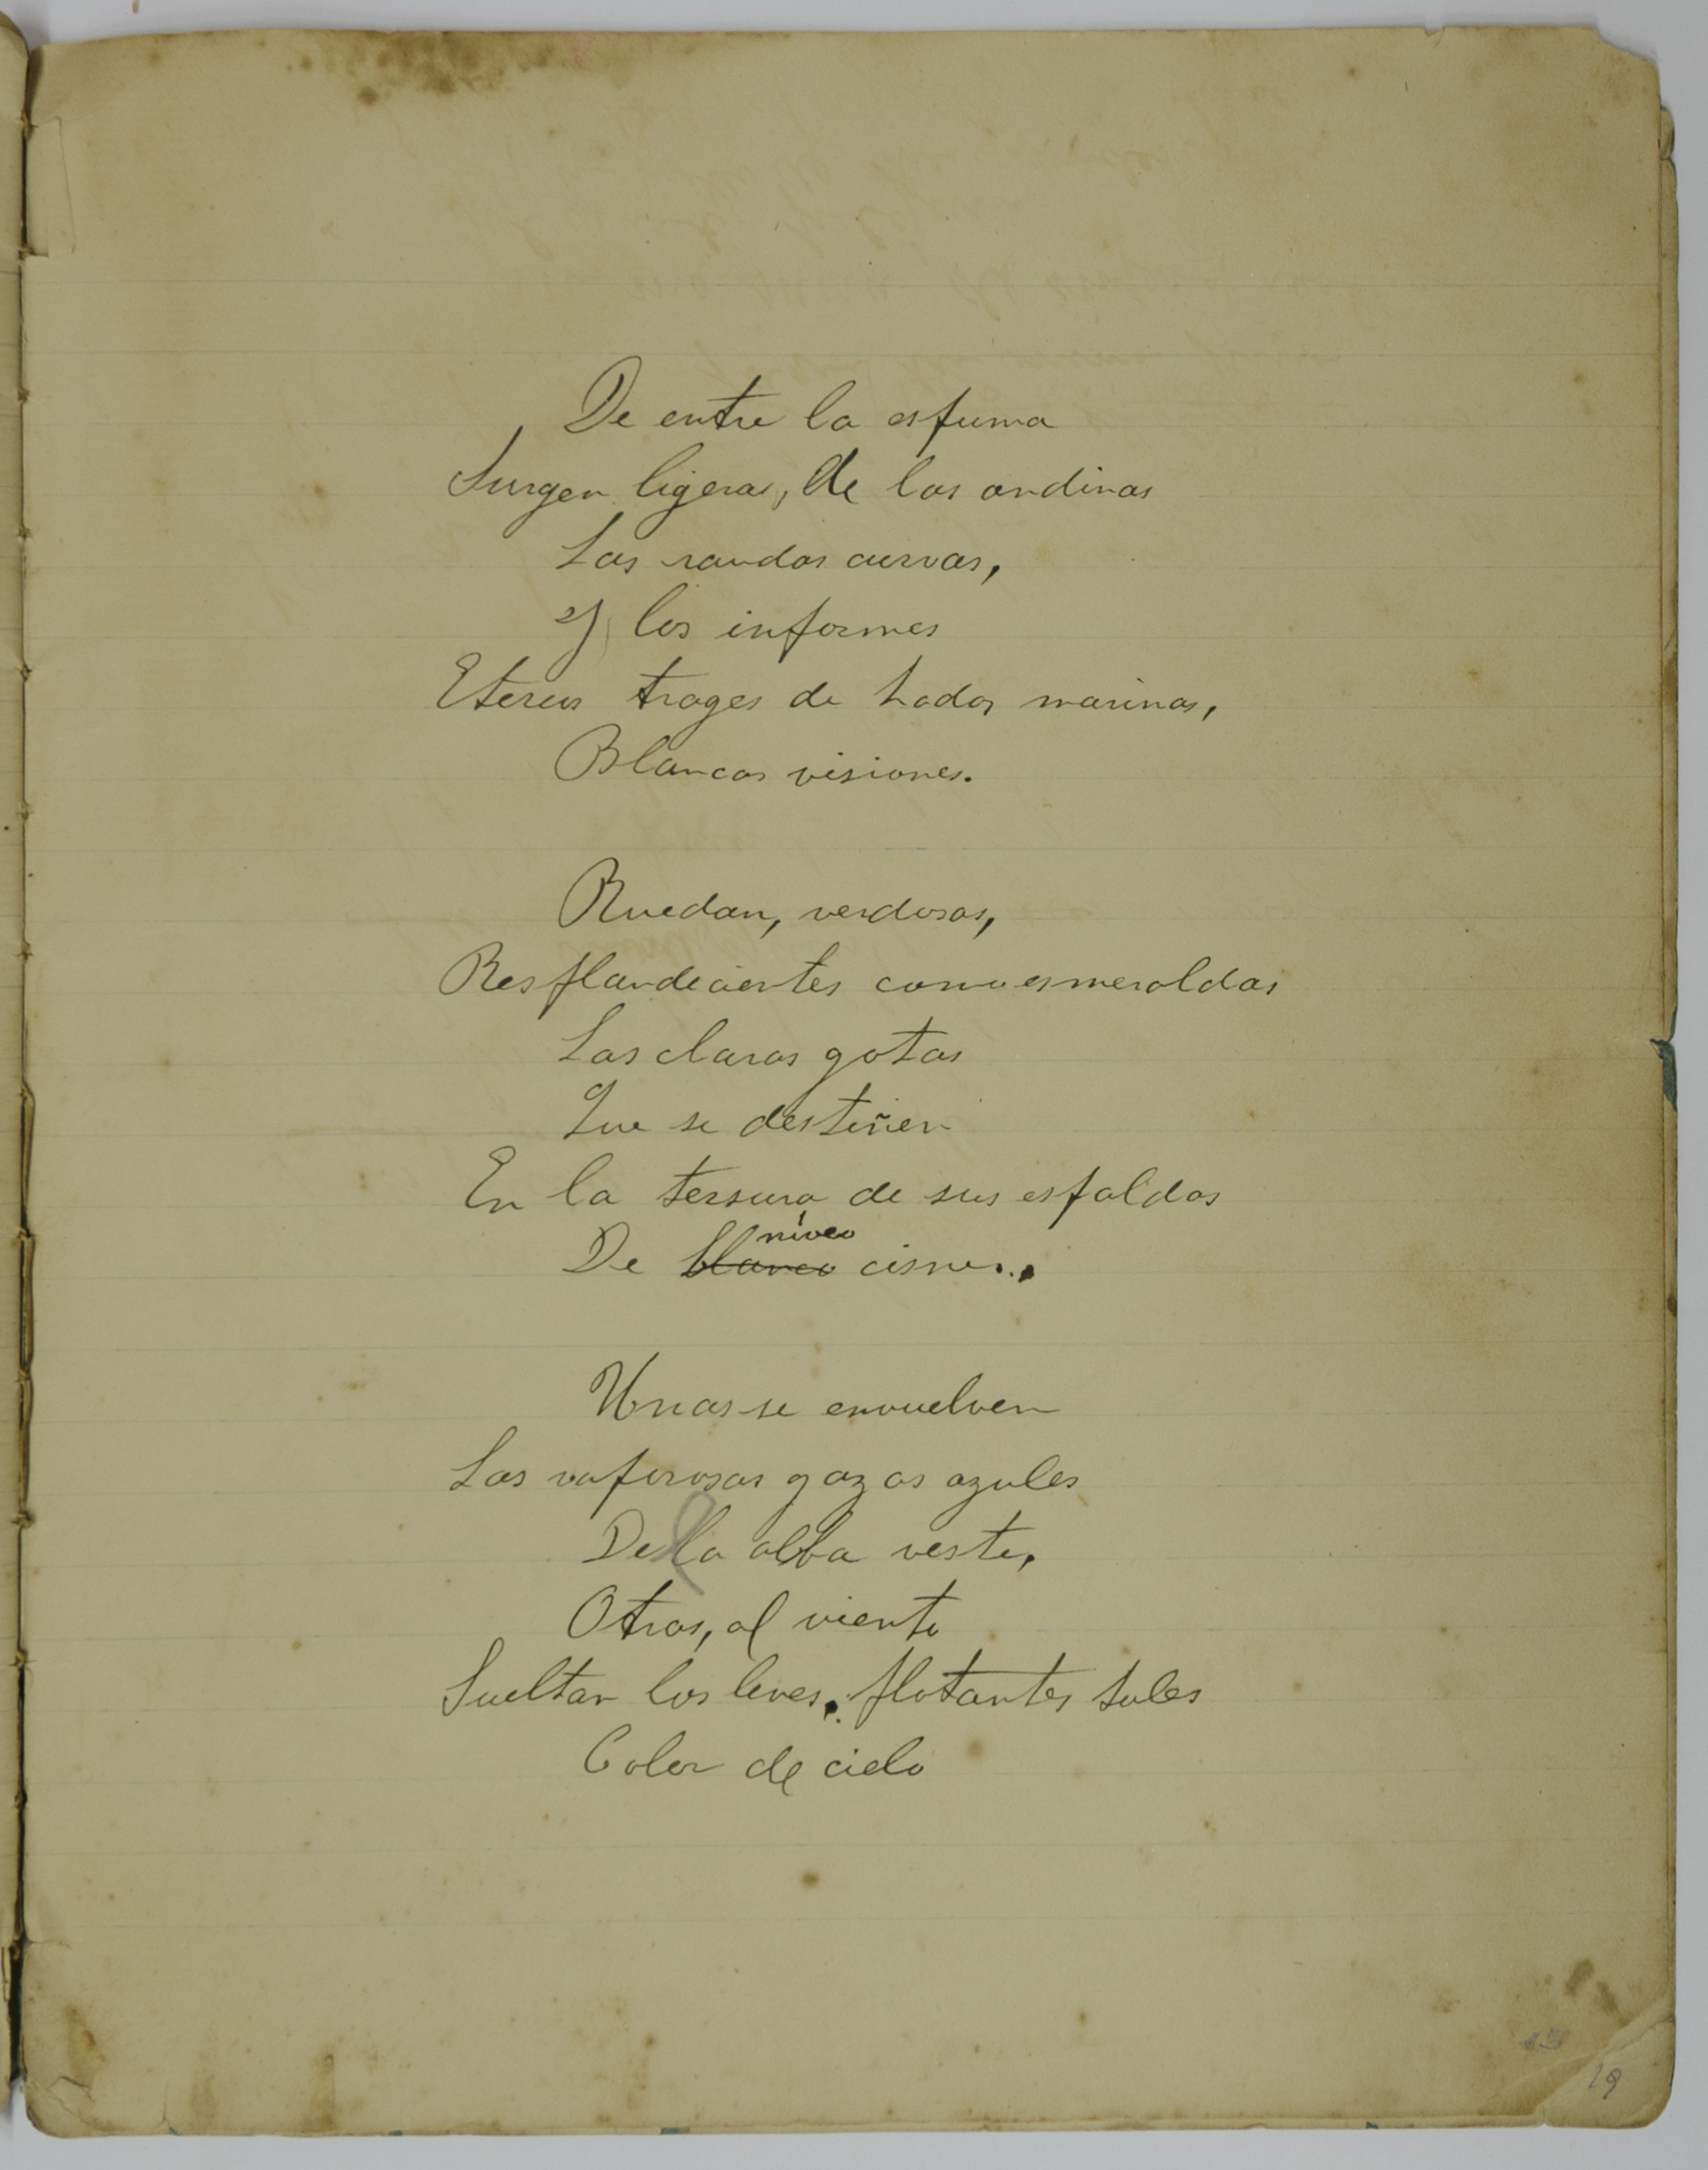 De entre la espuma
Surgen ligeras, de las ondinas
Las raudas curvas,
Y los informes
Etereos trages de hadas marinas,
Blancas visiones.
Ruedan, verdosas,
Resplandecientes como esmeraldas
Las claras gotas
Que se destiñen
En la tersura de sus espaldas
níveo
De blanco cisne..
Unas se envuelven
Las vaporosas gazas azules
De la alba veste,
Otras, al viento
Sueltan los leves, flotantes tules
Color de cielo
19